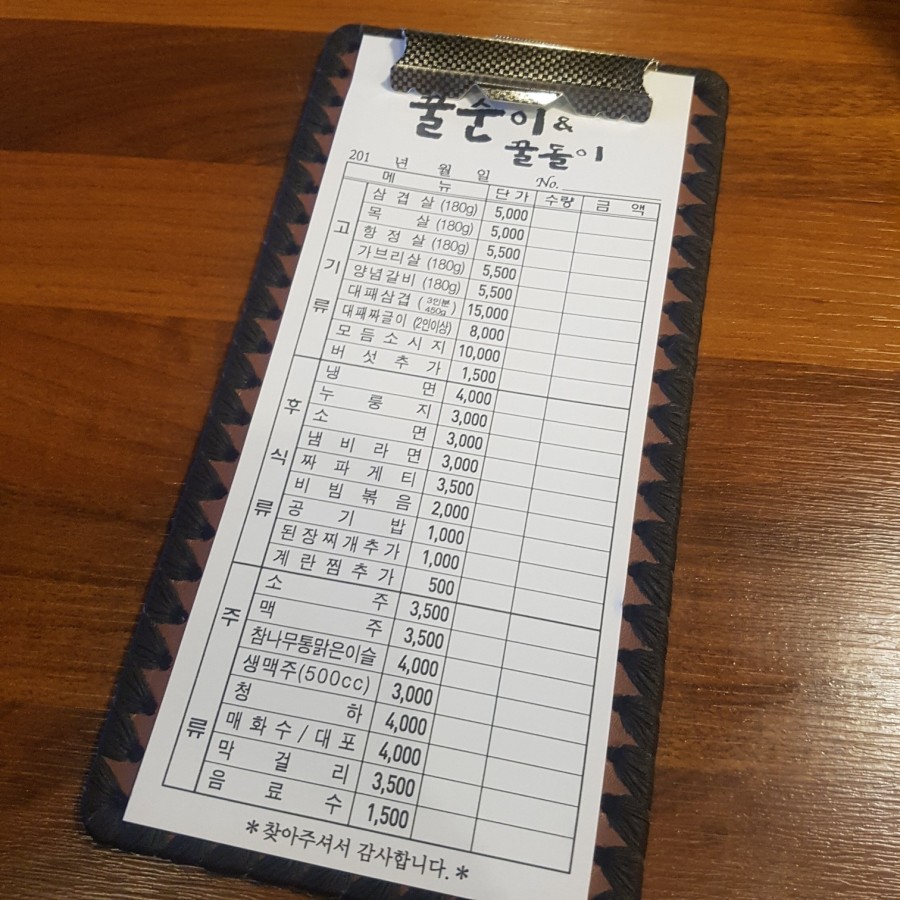 꿀순이&
꿀돌이
201 년 월 일 No.
메뉴 단가 수량 금액
고기류
삼겹살 (180g) 5,000
목살 (180g) 5,000
항정살 (180g) 5,500
가브리살 (180g) 5,500
양념갈비 (180g) 5,500
대패삼겹 (3인분 450g) 15,000
대패짜글이 (2인이상) 8,000
모듬소시지 10,000
버섯추가 1,500
후식류
냉면 4,000
누룽지 3,000
소면 3,000
냄비라면 3,000
짜파게티 3,500
비빔볶음 2,000
공기밥 1,000
된장찌개추가 1,000
계란찜추가 500
주류
소주 3,500
맥주 3,500
참나무통맑은이슬 4,000
생맥주(500cc) 3,000
청하 4,000
매화수/대포 4,000
막걸리 3,500
음료수 1,500
*찾아주셔서 감사합니다.*